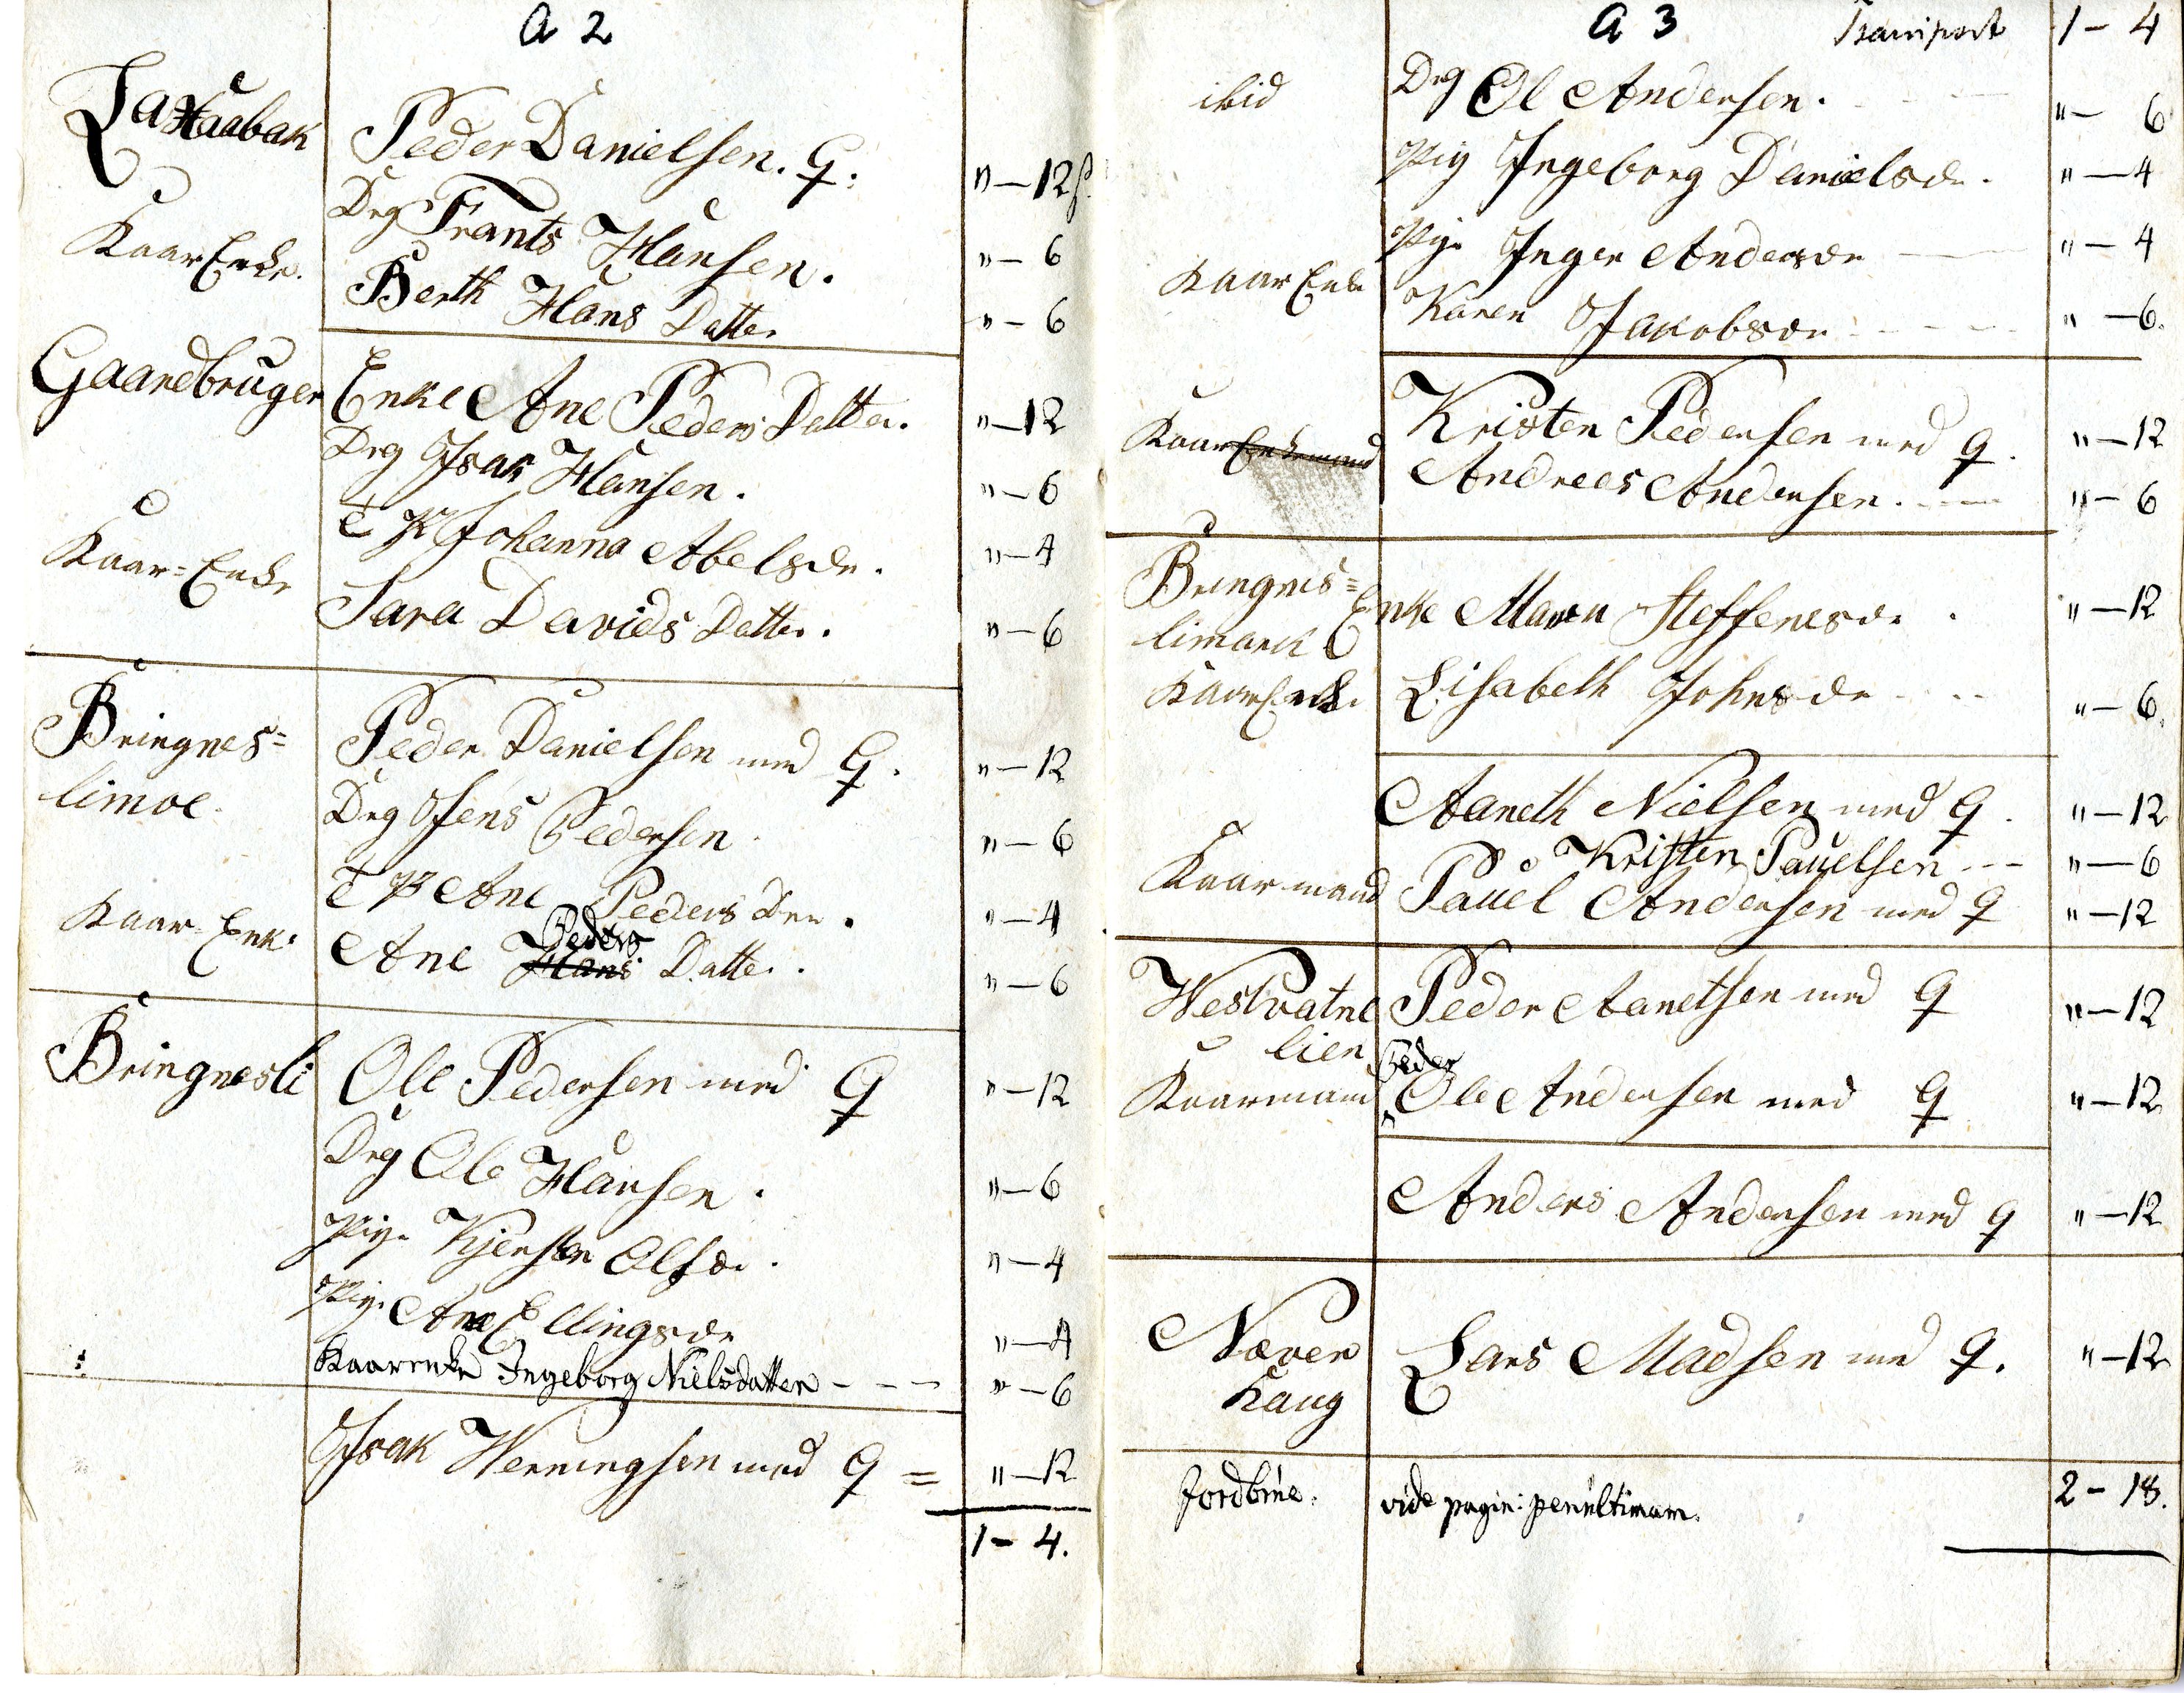 a 2
Laxaabak Peder Danielsen. Q: "–12ſ.
Drg Frants Hansen. "–6
Kaar Enke. Berth Hans Datter "–6
Gaardbruger Enke Ane Peders Datter. "–12
Drg Isak Hansen. "–6
T P Johanna Abelsdr. "–4
Kaar=Enke Sara Davids Datter. "–6
Bringnes= Peder Danielsen med Q. "–12
limoe. Drg Jens Pedersen. "–6
T P Ane Peders Dtr. "–4
Peders
Kaar Enke Ane Hans Datter. "–6
Bringnesli Ole Pedersen med Q "–12
Drg Ole Hansen. "–6
Pige Kjersten Olsdr. "–4
Pige Ane Ellingsdr "–4
Kaarenke Ingeborg Nielsdatter – – – "–6
Isak Henningsen med Q = "–12
1–4.
a 3 Transport 1–4
ibid Drg Ol Andersen. "–6
Pig Ingeborg Danielsdr. "–4
Pige Inger Andersdr "–4
Kaar Enke Karen Jakobsdr "–6.
Kristen Pedersen med Q. "–12
Kaar Enkemand Andrees Andersen. "–6
Bringnes=
limark Enke Maren Steffensdr. "–12
Kaar Enke Lisabeth Johnsdr "–6.
Aaneth Nielsen med Q. "–12
Kristen Pauelsen – – "–6
Kaarmand Pauel Andersen med Q "–12
Westvatne Peder Aanetsen med Q "–12
lien
Peder
Kaarmand Ole Andersen med Q "–12
Anders Andersen med Q "–12
Næver
haug Lars Madsen med Q. "–12
Jordbrue. vide pagin: penultimam. 2–18.